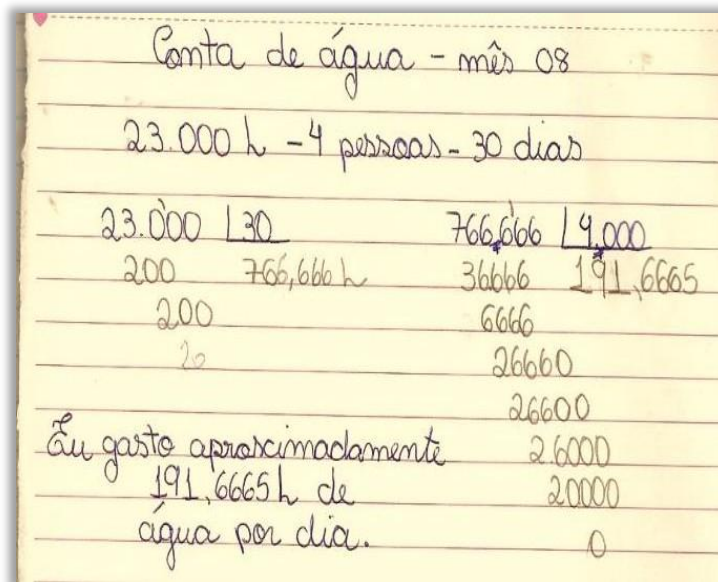 Conta de água - mês 08
23.000 L - 4 pessoas - 30 dias
23.000 | 30
200 766,666 L
200
20
766,666 | 4,000
36666 191,6665
6666
26660
26600
26000
20000
0
Eu gasto aproscimadamente
191,6665 L de
água por dia.